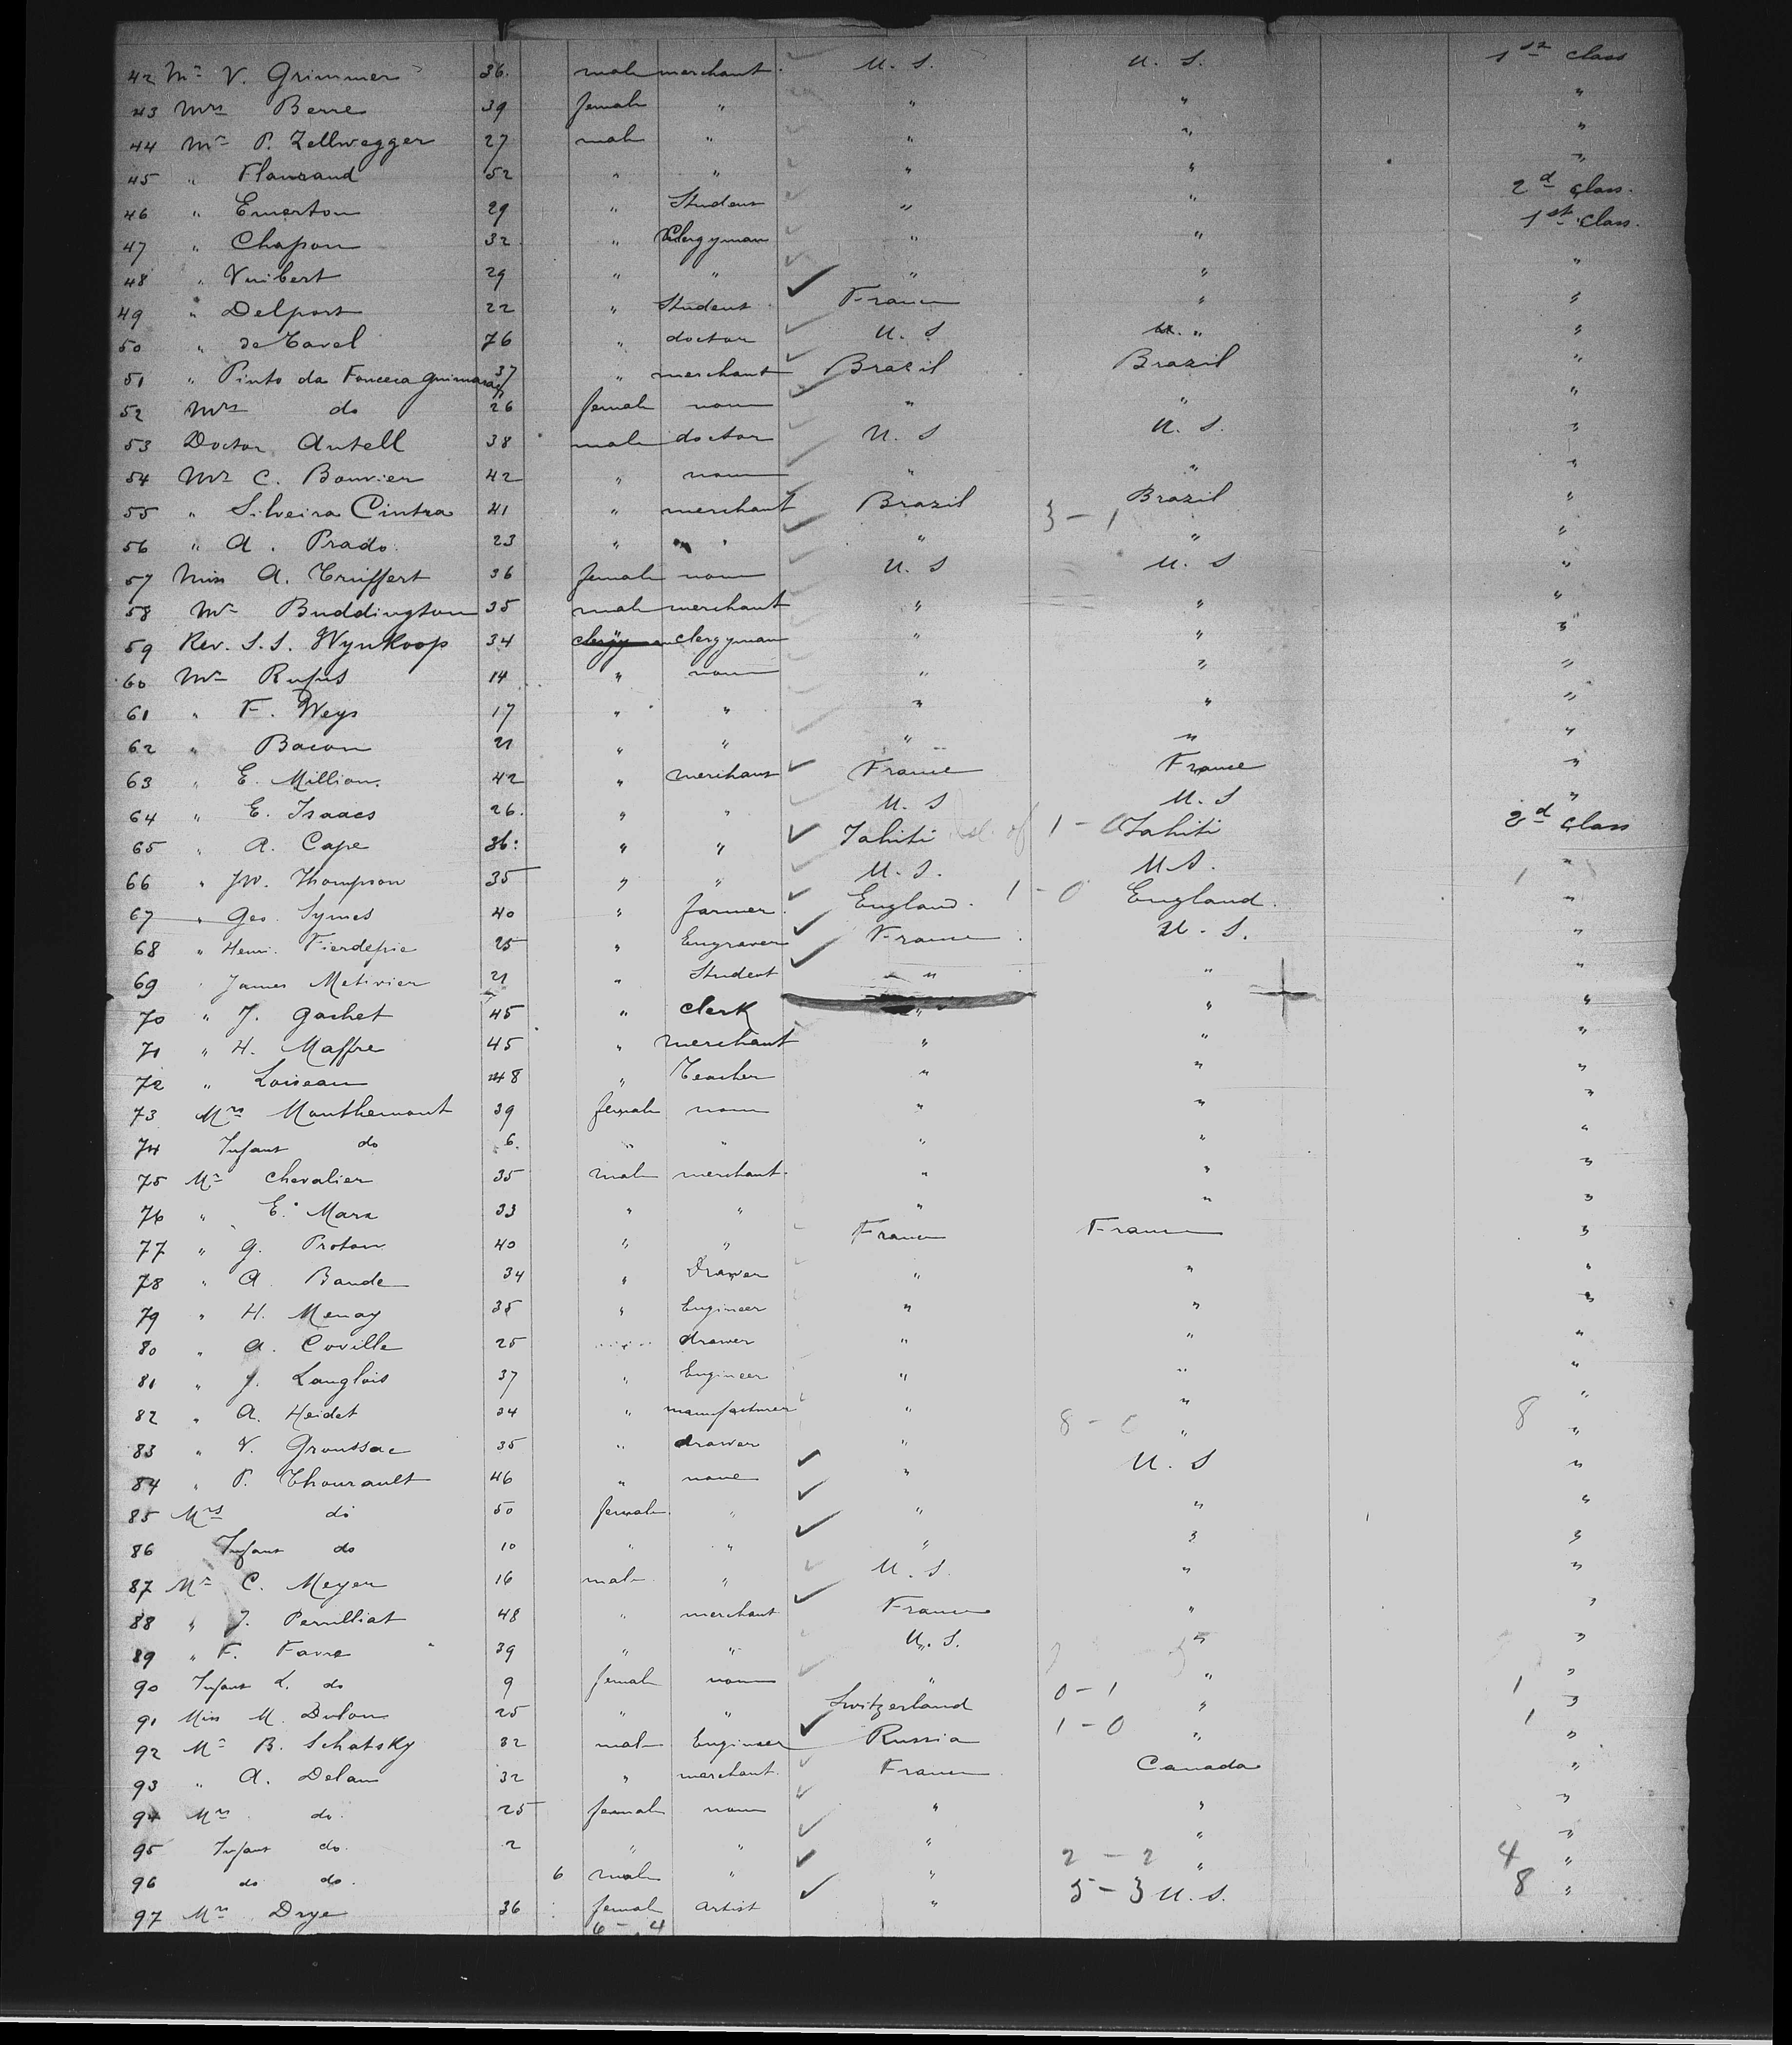 42 Mr V. Grimmer 36. male merchant. U. S. U. S. 1st class
43 Mrs Berre 39 female " " " "
44 Mr P. Zellwegger 27 male " " " "
45 " Flaurand 52 " " " " "
46 " Emerton 29 " Student " " 2d class.
47 " Chapon 32 " Clergyman " " 1st class.
48 " Vuibert 29 " " " " "
49 " Delport 22 " Student France " "
50 " de Tavel 76 " doctor U. S U. " "
51 " Pinto da Fonceca Guimaraes 37 " merchant Brazil Brazil "
52 Mrs do 26 female none " " "
53 Doctor Antell 38 male doctor U. S U. S. "
54 Mr C. Bouvier 42 " none " " "
55 " Silveira Cintra 41 " merchant Brazil 3 - 1 Brazil "
56 " A. Prado. 23 " " " " "
57 Miss A. Truffert 36 female none U. S U. S "
58 Mr Buddington 35 male merchant " " "
59 Rev. S. S. Wynkoop 34 clergyman clergyman " " "
60 Mr Rufus 14 " none " " "
61 " F. Weys 17 " " " " "
62 " Bacon 21 " " " " "
63 " E. Million. 42 " merchant France France "
64 " E. Isaacs 26. " " U. S U. S "
65 " A. Cape 36. " " Tahiti Isl. of 1 - 0 Tahiti 2d class
66 " J.W. Thompson 35 " " U. S. U. S. "
67 " Geo. Symes 40 " farmer. England. 1 - 0 England. 1 "
68 " Henri. Fierdepie 25 " Engraver France. U. S. "
69 " James Metivier 21 " Student " " "
70 " J. Gachet 45 " clerk " " "
71 " H. Maffre 45 " merchant " " "
72 " Loiseau 48 " Teacher " " "
73 Mrs Monthemont 39 female none " " "
74 Infant do 6. " " " " "
75 Mr Chevalier 35 male merchant. " " "
76 " E. Marx 33 " " " " "
77 " G. Proton 40 " " France France "
78 " A. Baude 34 " Drawer " " "
79 " H. Menay 35 " Engineer " " "
80 " A. Coville 25 " drawer " " "
81 " J. Langlois 37 " Engineer " " "
82 " A. Heidet 34 " manufacturer " " "
83 " V. Groussac 35 " drawer " 8 - 0 " 8 "
84 " P. Thourault 46 " none " U. S "
85 Mrs do 50 female " " " "
86 Infant do 10 " " " " "
87 Mr C. Meyer 16 male " U. S. " "
88 " J. Perrilliat 48 " merchant France " "
89 " F. Favre 39 " " U. S. " "
90 Infant L. do 9 female none " " "
91 Miss M. Dulon 25 " " Switzerland 0 - 1 " 1 "
92 Mr B. Schatsky 32 male Engineer Russia 1 - 0 " 1 "
93 " A. Delau 32 " merchant. France Canada "
94 Mrs do. 25 female none " " "
95 Infant do. 2 " " " " "
96 do do. 6 male " " 2 - 2 " 4 "
97 Mrs Drye 36 female artist " 5 - 3 U. S. 8 "
6 - 4